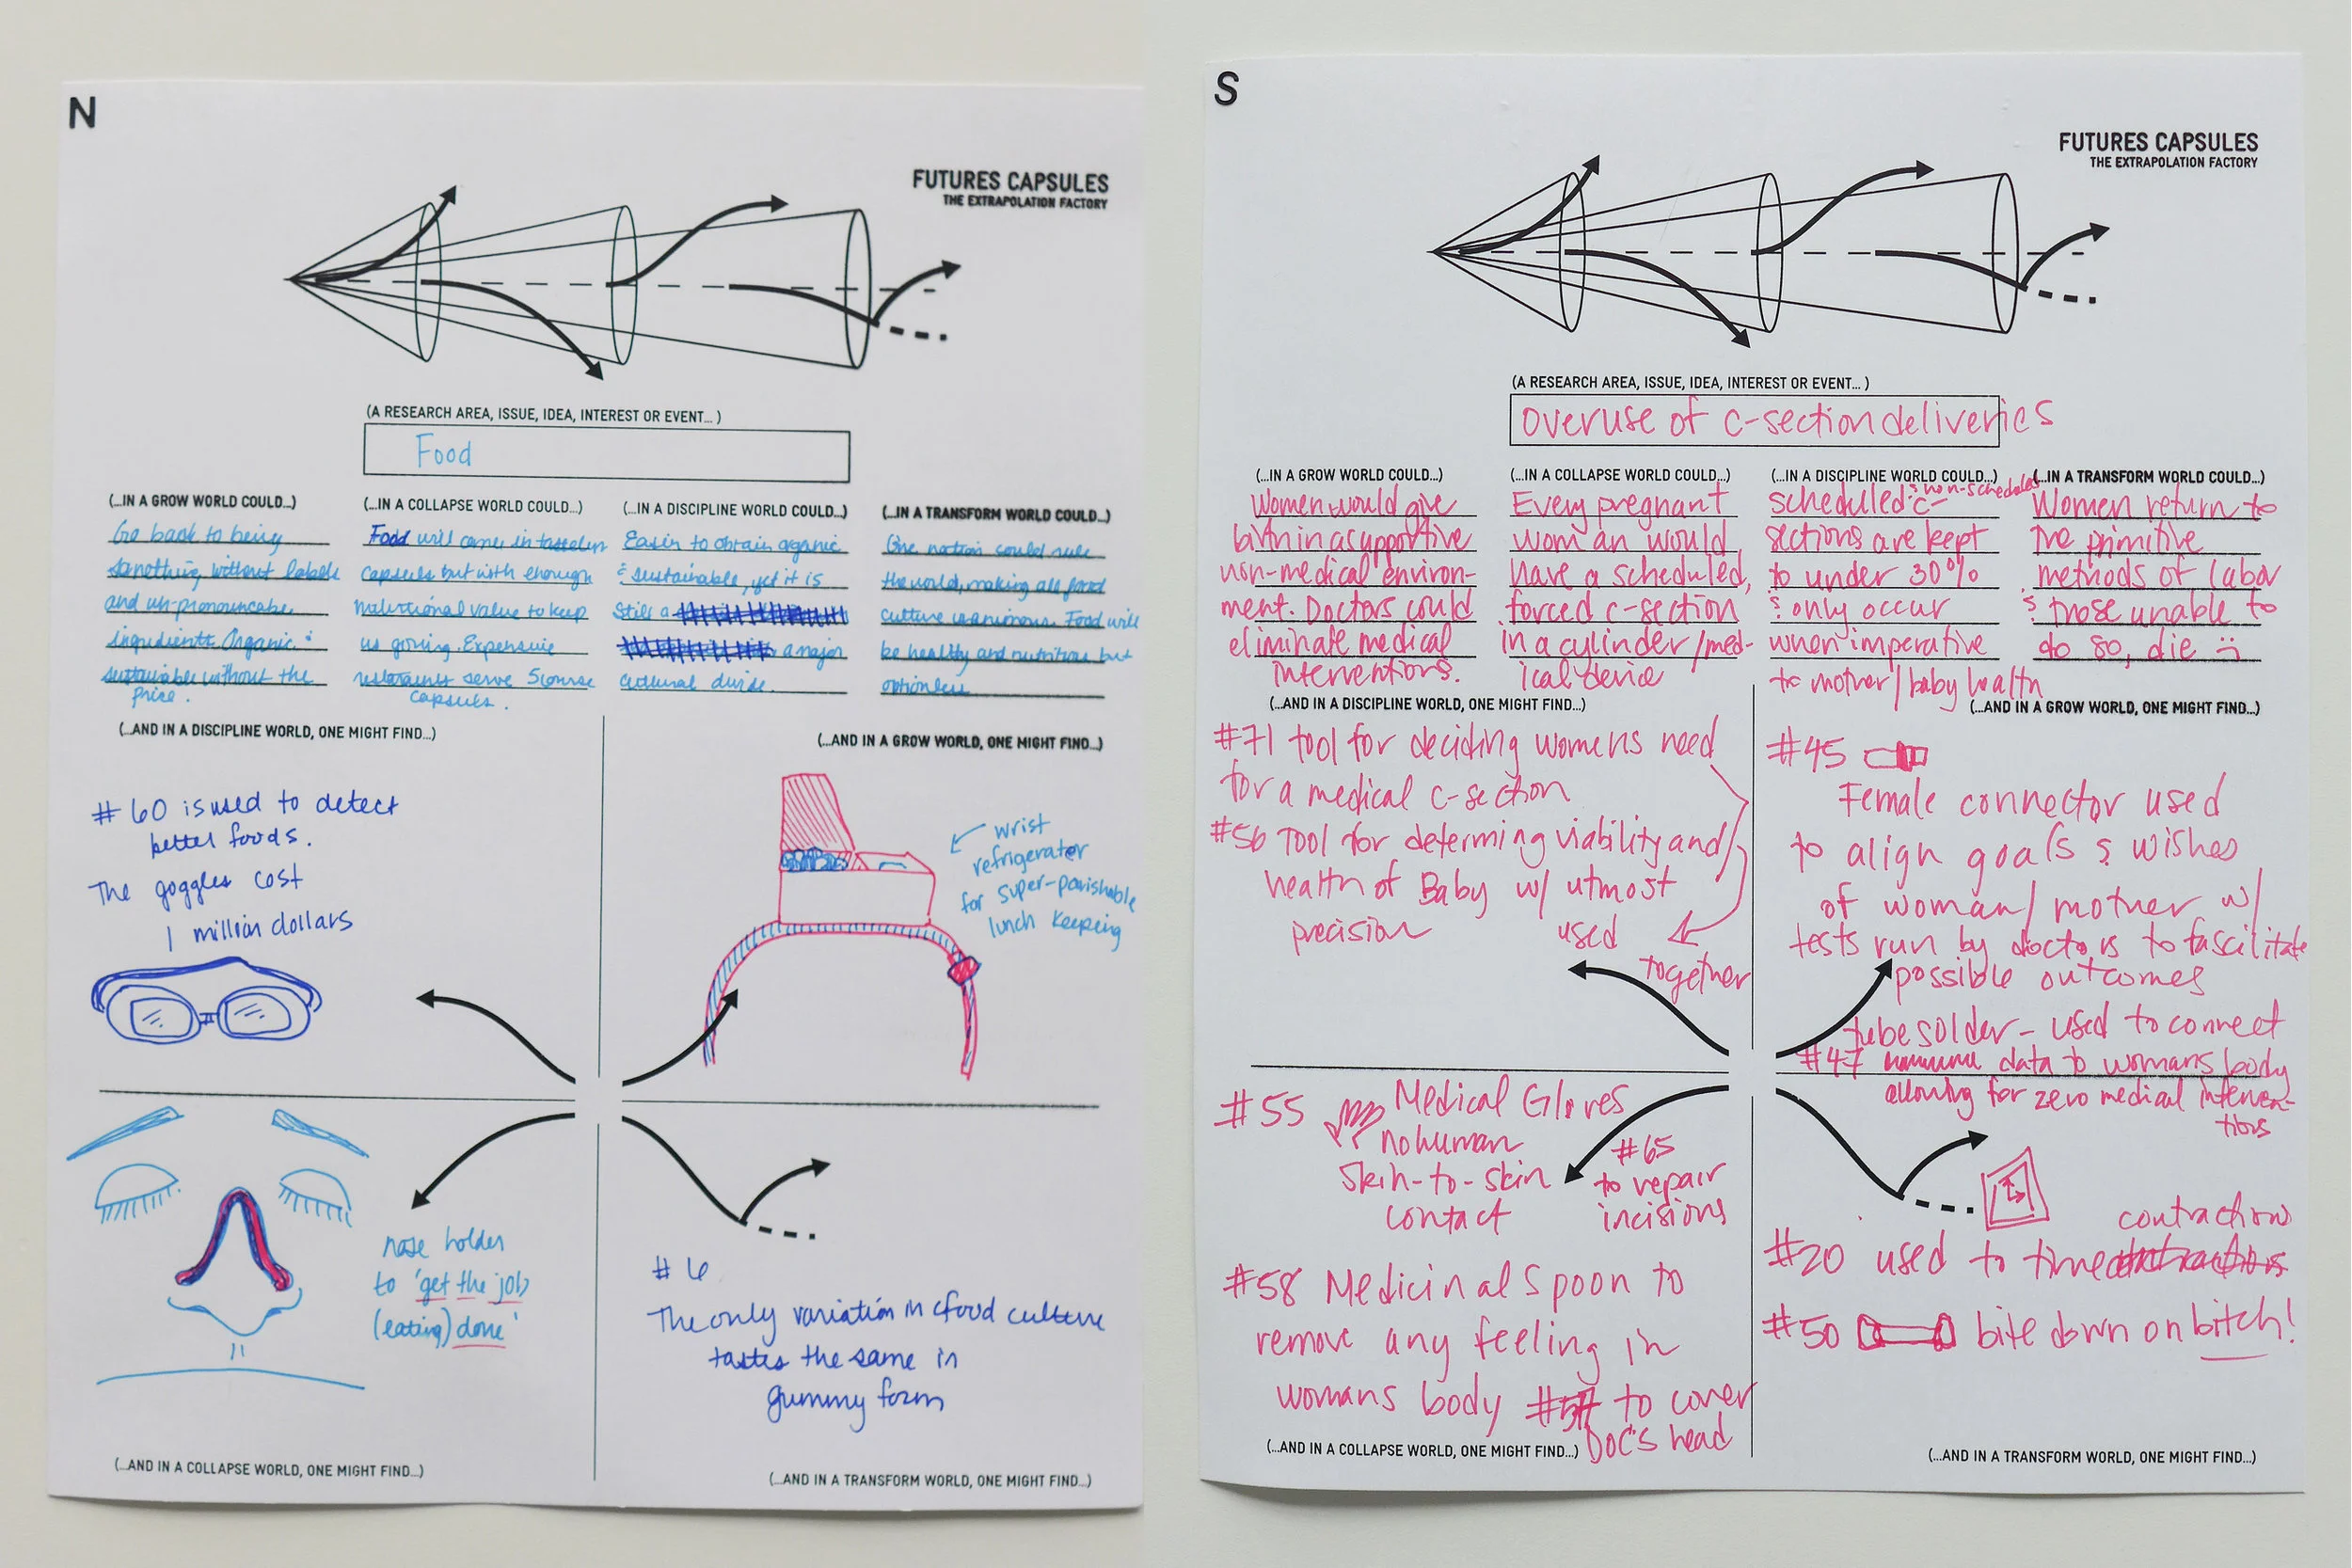 N
FUTURES CAPSULES
THE EXTRAPOLATION FACTORY
(A RESEARCH AREA, ISSUE, IDEA, INTEREST OR EVENT... )
Food
(...IN A GROW WORLD COULD...)
Go back to being
something without labels
and un-pronouncable
ingredients. Organic &
sustainable without the
price.
(...IN A COLLAPSE WORLD COULD...)
Food will come in
capsules but with enough
nutritional value to keep
us going. Expensive
restaurants serve 5 course
capsules.
(...IN A DISCIPLINE WORLD COULD...)
Easier to obtain organic
& sustainable, yet it is
still a
a major
cultural divide.
(...IN A TRANSFORM WORLD COULD...)
One nation could rule
the world, making all food
culture Food will
be healthy and nutritious but
optionless
(...AND IN A DISCIPLINE WORLD, ONE MIGHT FIND...)
# 60 is used to detect
better foods.
The goggles cost
1 million dollars
(...AND IN A GROW WORLD, ONE MIGHT FIND...)
wrist
refrigerator
for super-parishable
lunch keeping
nose holder
to 'get the job
(eating) done'
(...AND IN A COLLAPSE WORLD, ONE MIGHT FIND...)
# 6
The only variation in food culture
tastes the same in
gummy form
(...AND IN A TRANSFORM WORLD, ONE MIGHT FIND...)
S
FUTURES CAPSULES
THE EXTRAPOLATION FACTORY
(A RESEARCH AREA, ISSUE, IDEA, INTEREST OR EVENT... )
overuse of c-section deliveries
(...IN A GROW WORLD COULD...)
Women would give
birth in a supportive
non-medical environ-
ment. Doctors could
eliminate medical
interventions.
(...IN A COLLAPSE WORLD COULD...)
Every pregnant
woman would
have a scheduled,
forced c-section
in a cylinder/med-
ical device
(...IN A DISCIPLINE WORLD COULD...)
scheduled & non-scheduled c-
sections are kept
to under 30%
& only occur
when imperative
to mother/baby health
(...IN A TRANSFORM WORLD COULD...)
Women return to
the primitive
methods of labor
& those unable to
do so, die
(...AND IN A DISCIPLINE WORLD, ONE MIGHT FIND...)
#71 tool for deciding womens need
for a medical c-section
#56 Tool for determining viability and
health of Baby w/ utmost
precision
used
together
(...AND IN A GROW WORLD, ONE MIGHT FIND...)
#45
Female connector used
to align goals & wishes
of woman/mother w/
tests run by doctors to fascilitate
possible outcomes
tube solder - used to connect
#47 data to womans body
allowing for zero medical interven-
tions
#55 Medical Gloves
no human
skin-to-skin
contact
#65
to repair
incisions
#58 Medicinal Spoon to
remove any feeling in
womans body #57 to cover
Doc's head
(...AND IN A COLLAPSE WORLD, ONE MIGHT FIND...)
contractions
#20 used to time
#50 bite down on bitch!
(...AND IN A TRANSFORM WORLD, ONE MIGHT FIND...)